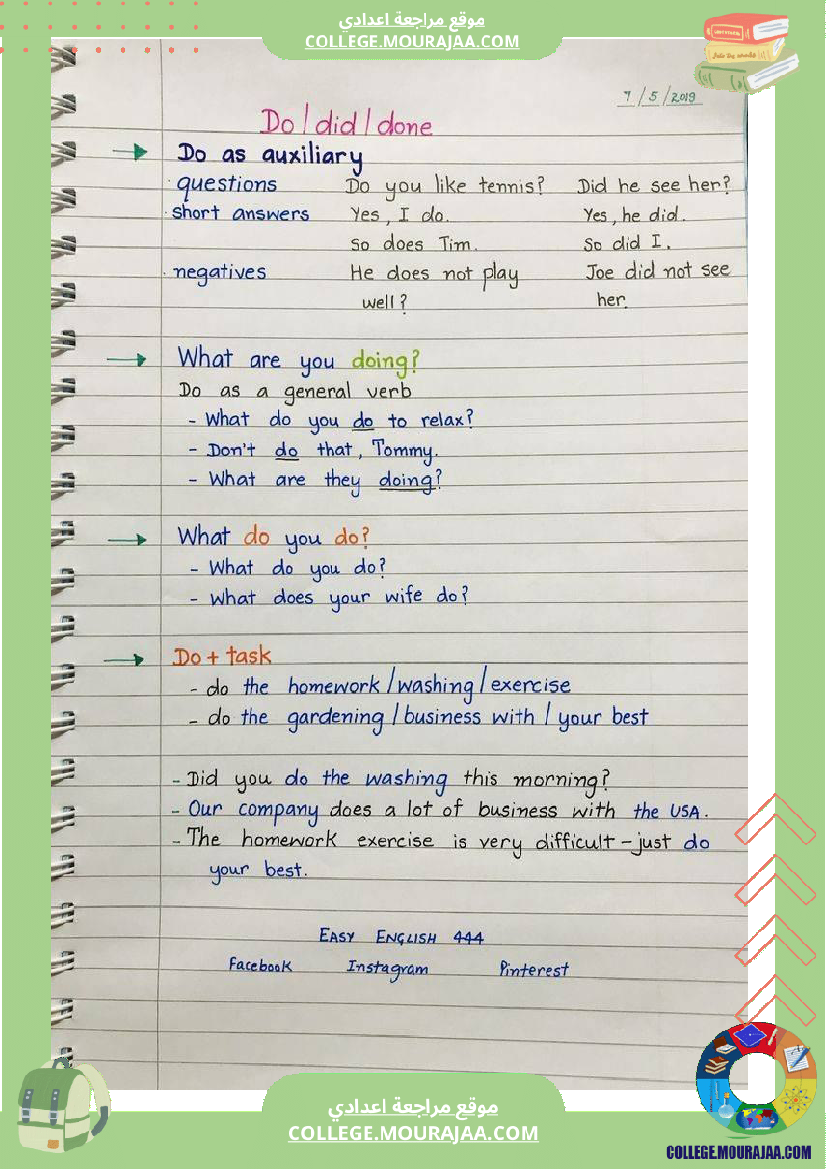 موقع مراجعة اعدادي
COLLEGE.MOURAJAA.COM
7/5/2019
Do/did/done
Do as auxiliary
questions Do you like tennis? Did he see her?
short answers Yes, I do. Yes, he did.
So does Tim. So did I.
negatives He does not play Joe did not see
well? her.
What are you doing?
Do as a general verb
- What do you do to relax?
- Don't do that, Tommy.
- What are they doing?
What do you do?
- What do you do?
- What does your wife do?
Do + task
- do the homework/washing/exercise
- do the gardening/business with/your best
- Did you do the washing this morning?
- Our company does a lot of business with the USA.
- The homework exercise is very difficult - just do
your best.
EASY ENGLISH 444
Facebook Instagram Pinterest
موقع مراجعة اعدادي
COLLEGE.MOURAJAA.COM
COLLEGE.MOURAJAA.COM